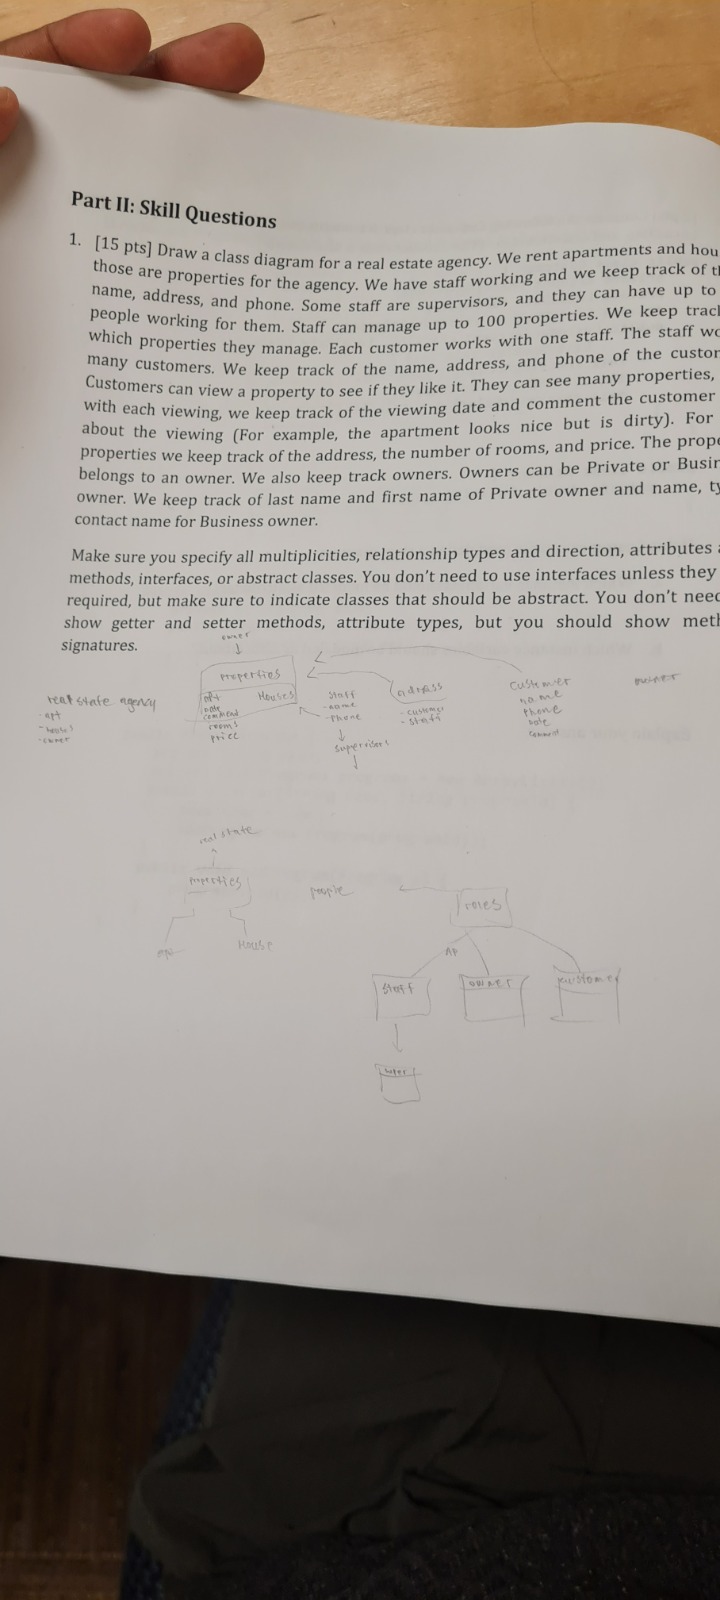 Part II: Skill Questions
1. [15 pts] Draw a class diagram for a real estate agency. We rent apartments and hou
those are properties for the agency. We have staff working and we keep track of t
name, address, and phone. Some staff are supervisors, and they can have up to
people working for them. Staff can manage up to 100 properties. We keep trac
which properties they manage. Each customer works with one staff. The staff wo
many customers. We keep track of the name, address, and phone of the custor
Customers can view a property to see if they like it. They can see many properties,
with each viewing, we keep track of the viewing date and comment the customer
about the viewing (For example, the apartment looks nice but is dirty). For
properties we keep track of the address, the number of rooms, and price. The prope
belongs to an owner. We also keep track owners. Owners can be Private or Busir
owner. We keep track of last name and first name of Private owner and name, ty
contact name for Business owner.
Make sure you specify all multiplicities, relationship types and direction, attributes a
methods, interfaces, or abstract classes. You don't need to use interfaces unless they
required, but make sure to indicate classes that should be abstract. You don't need
show getter and setter methods, attribute types, but you should show meth
signatures.
owner
properties
real state agency
- apt
- houses
- owner
apt Houses
comment
rooms
price
staff
- name
- phone
supervisors
address
- customer
- staff
customer
name
phone
comment
owner
real state
properties
people
roles
House
AP
staff
owner
customer